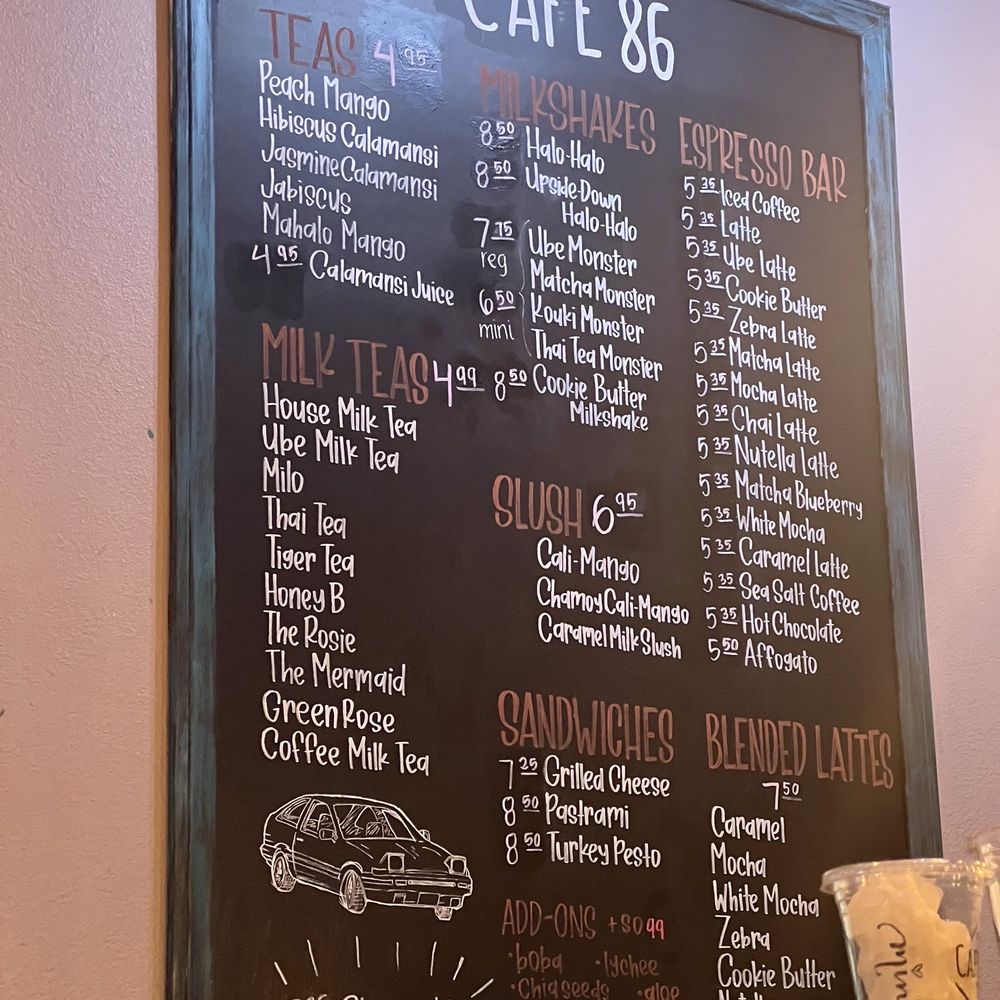 CAFE 86
TEAS 4.95
Peach Mango
Hibiscus Calamansi
Jasmine Calamansi
Jabiscus
Mahalo Mango
4.95 Calamansi Juice
MILK TEAS 4.99
House Milk Tea
Ube Milk Tea
Milo
Thai Tea
Tiger Tea
Honey B
The Rosie
The Mermaid
Green Rose
Coffee Milk Tea
MILKSHAKES
8.50 Halo-Halo
8.50 Upside-Down
Halo-Halo
7.75 reg
6.50 mini
Ube Monster
Matcha Monster
Kouki Monster
Thai Tea Monster
8.50 Cookie Butter
Milkshake
SLUSH 6.95
Cali-Mango
Chamoy Cali-Mango
Caramel Milk Slush
SANDWICHES
7.25 Grilled Cheese
8.50 Pastrami
8.50 Turkey Pesto
ADD-ONS +$0.99
·boba ·lychee
·Chia seeds ·aloe
ESPRESSO BAR
5.35 Iced Coffee
5.35 Latte
5.35 Ube Latte
5.35 Cookie Butter
5.35 Zebra Latte
5.35 Matcha Latte
5.35 Mocha Latte
5.35 Chai Latte
5.35 Nutella Latte
5.35 Matcha Blueberry
5.35 White Mocha
5.35 Caramel Latte
5.35 Sea Salt Coffee
5.35 Hot Chocolate
5.50 Affogato
BLENDED LATTES
7.50
Caramel
Mocha
White Mocha
Zebra
Cookie Butter